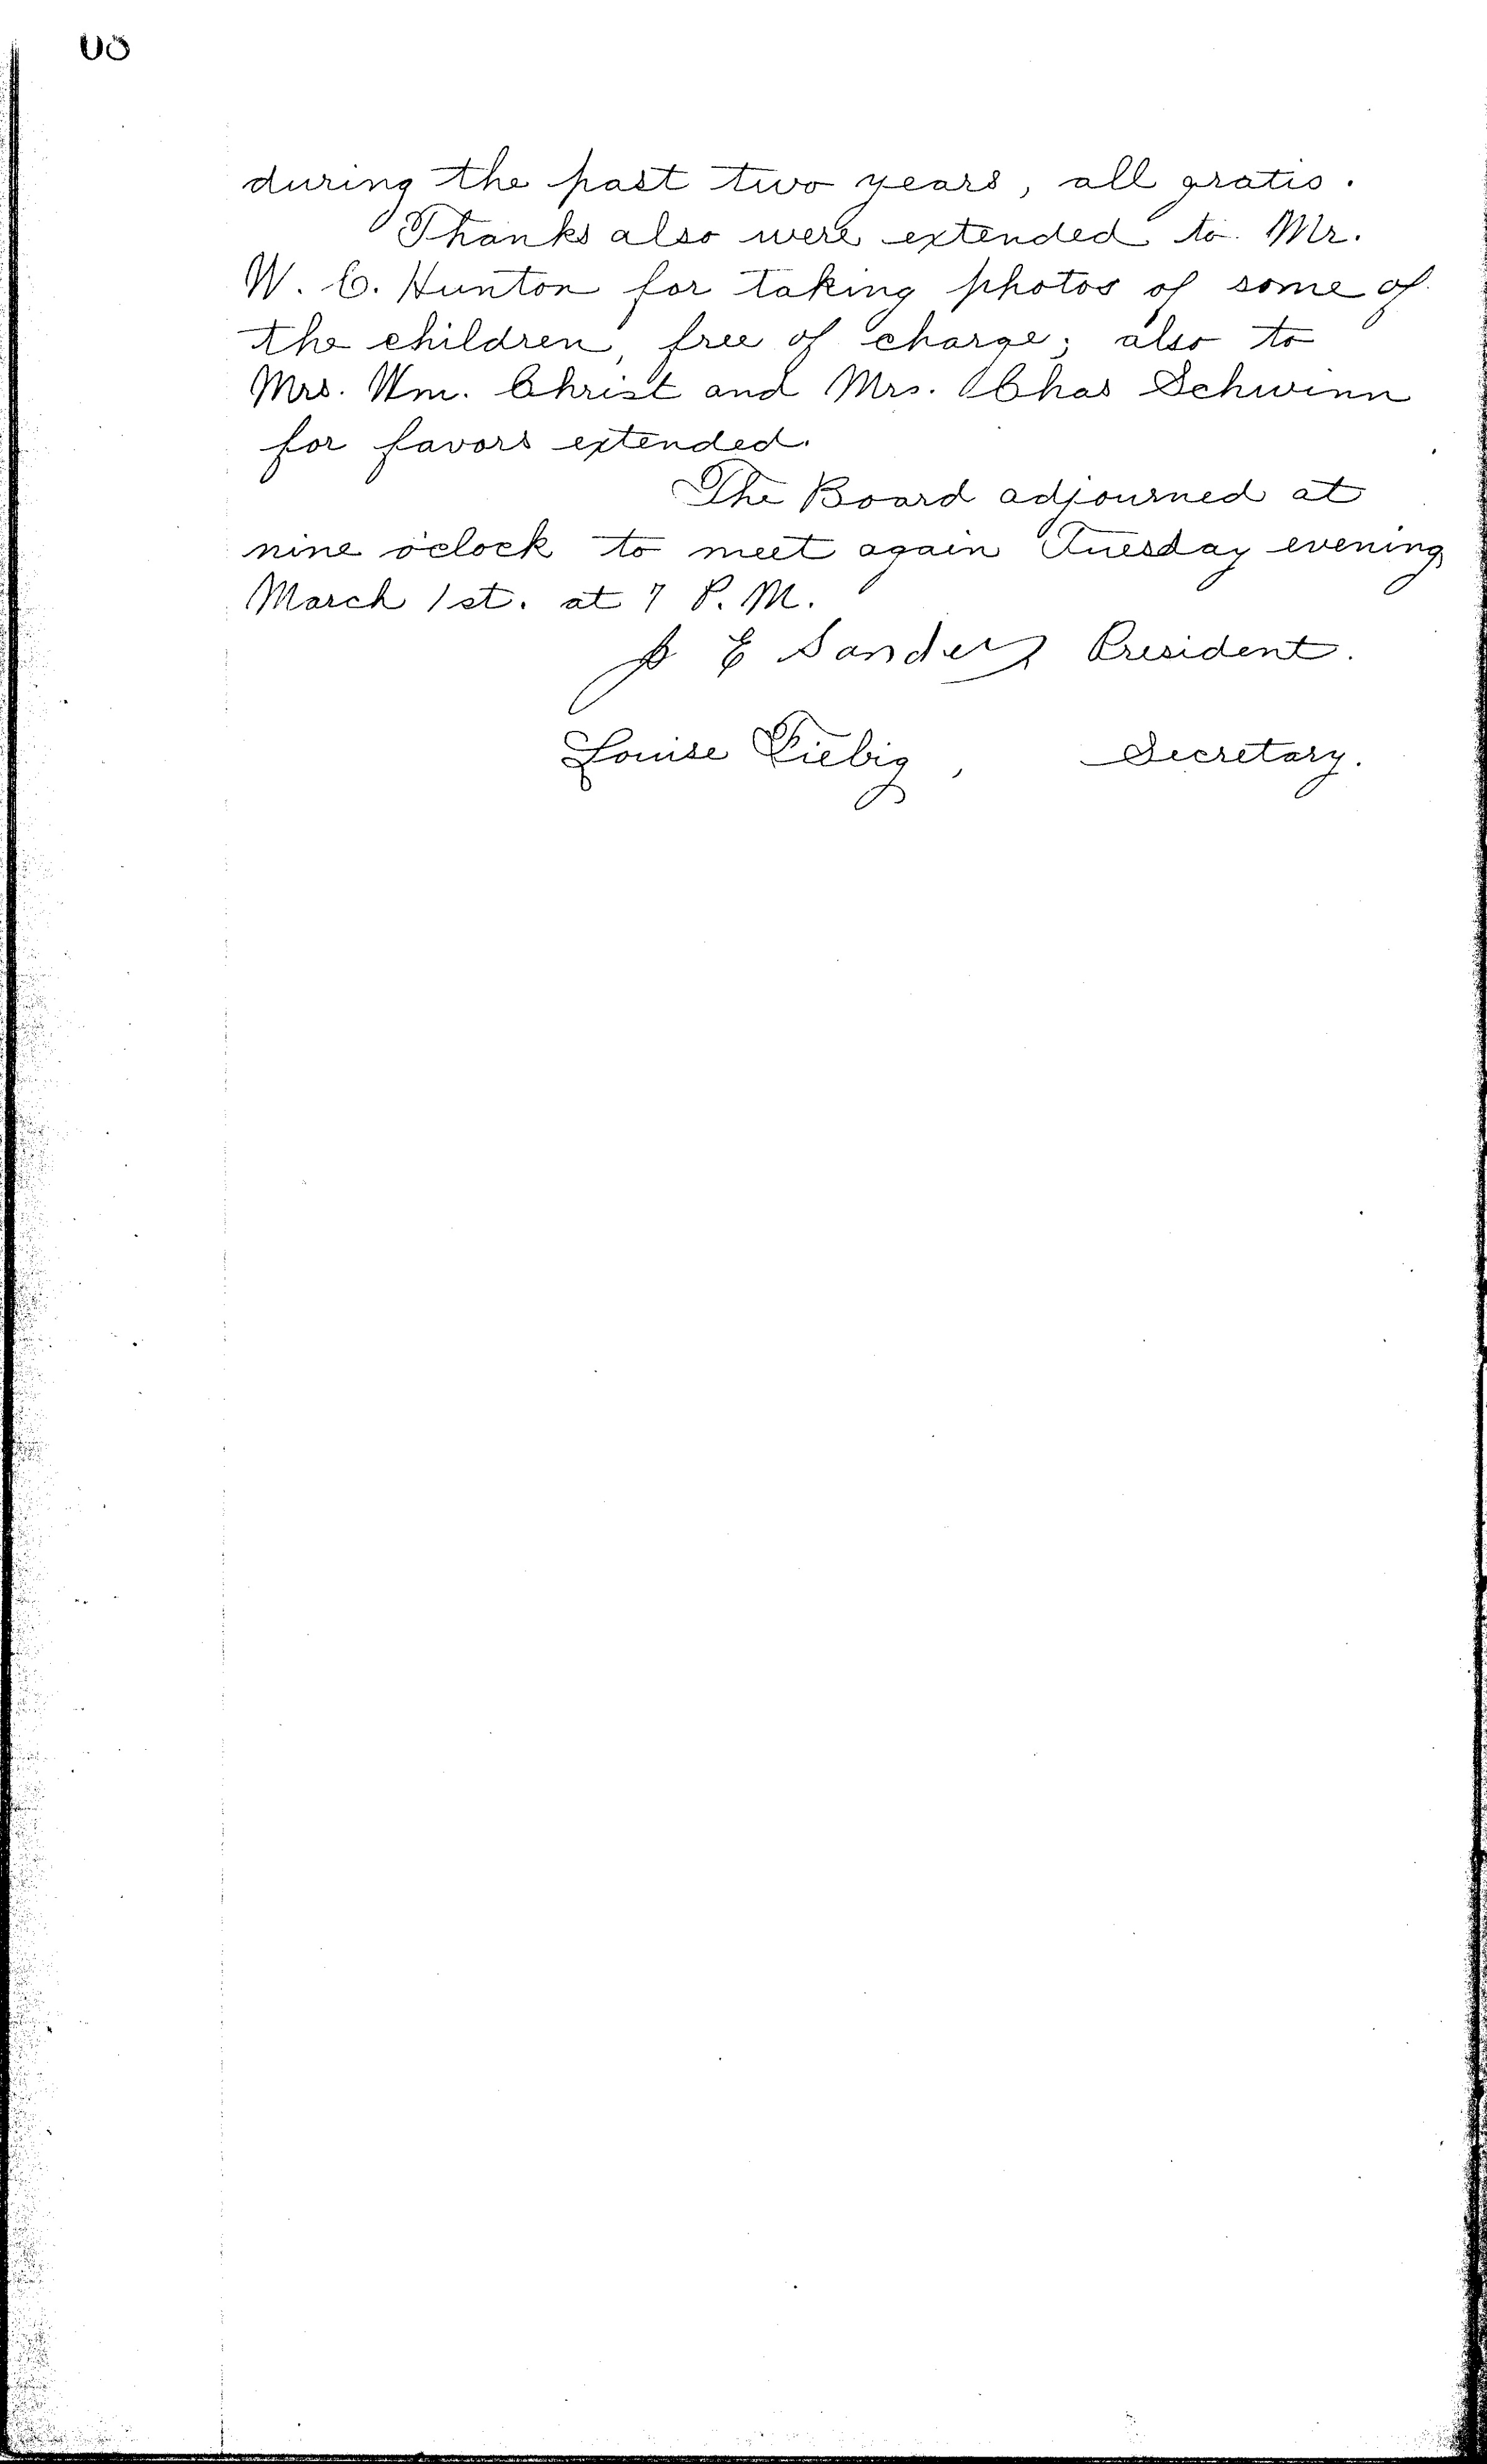 during the past two years, all gratis.
Thanks also were extended to Mr.
W. C. Hunton for taking photos of some of
the children, free of charge; also to
Mrs. Wm. Christ and Mrs. Chas Schwinn
for favors extended.
The Board adjourned at
nine o'clock to meet again Tuesday evening
March 1st. at 7 P. M.
E Sanders President.
Louise Fiebig, Secretary.